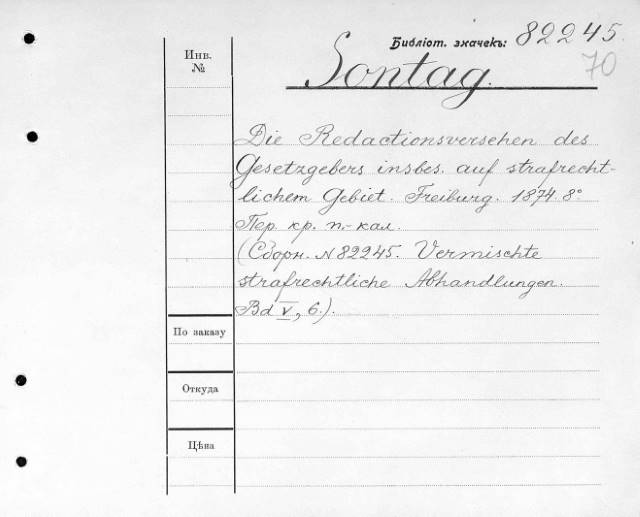 Библіот. значекъ: 82245.
70
Инв. №
Sontag.
Die Redactionsversehen des
Gesetzgebers insbes. auf strafrecht-
lichem Gebiet. Freiburg. 1874. 8°.
Пер. кр. п.-кал.
(Сборн. №82245. Vermischte
strafrechtliche Abhandlungen.
Bd V, 6.).
По заказу
Откуда
Цѣна